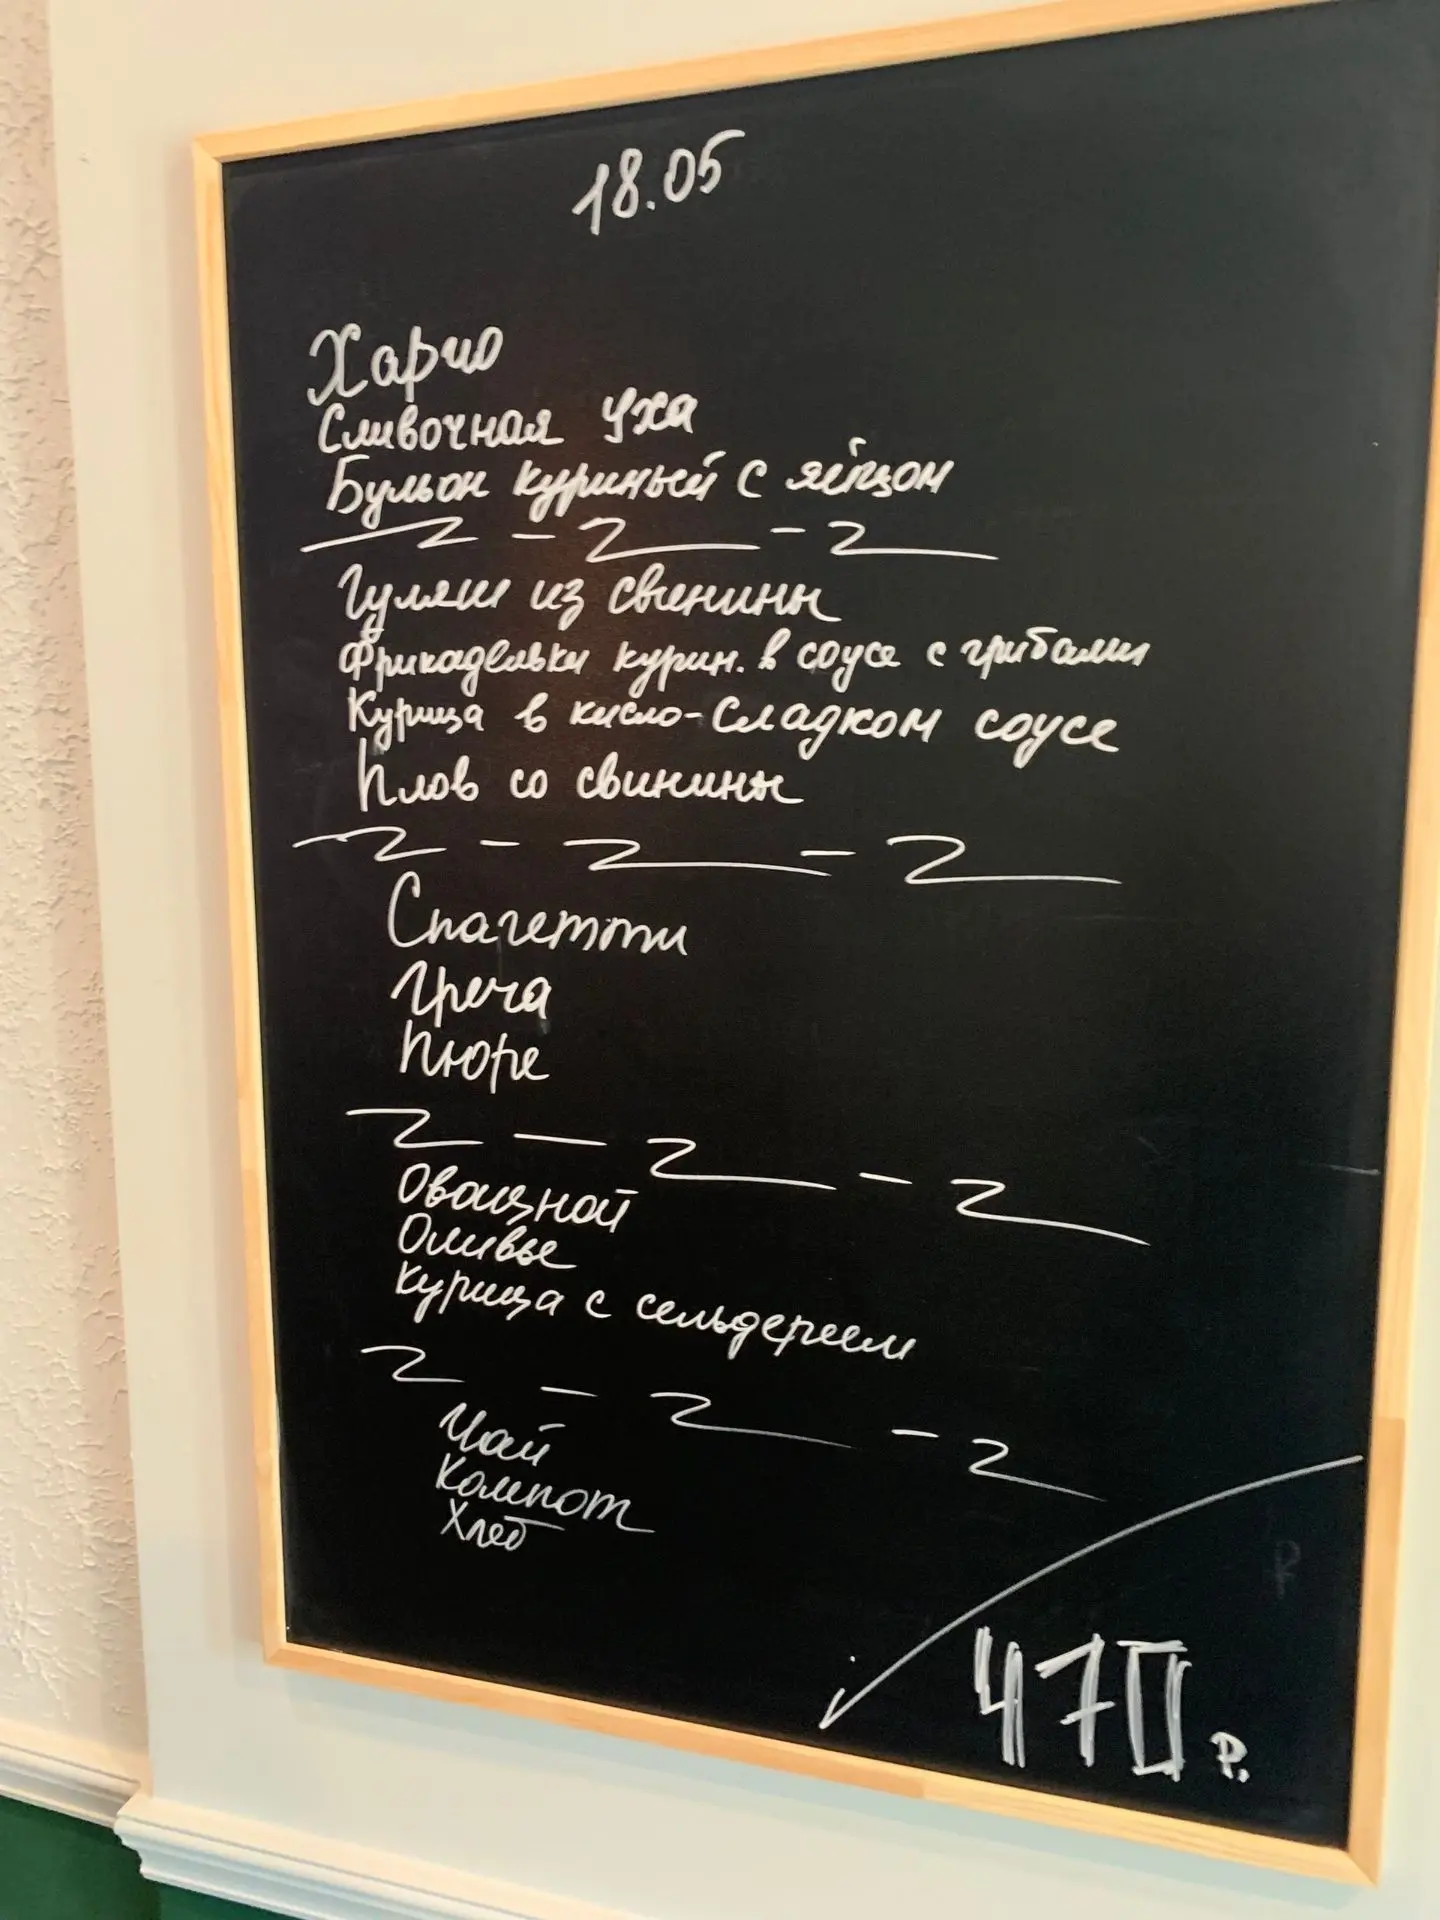 18.05
Харчо
Сливочная уха
Бульон куриный с яйцом
Гуляш из свинины
Фрикадельки курин. в соусе с грибами
Курица в кисло-сладком соусе
Плов со свинины
Спагетти
Греча
Пюре
Овощной
Оливье
Курица с сельдереем
Чай
Компот
Хлеб
470 р.